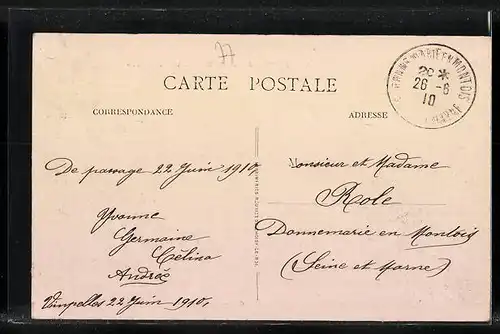 77
CARTE POSTALE
CORRESPONDANCE
ADRESSE
26 -6
10
De passage 22 Juin 1910
Yvonne
Germaine
Célina
Andrée
Vimpelles 22 Juin 1910,
Monsieur et Madame
Role
Donnemarie en Montois
(Seine et Marne)